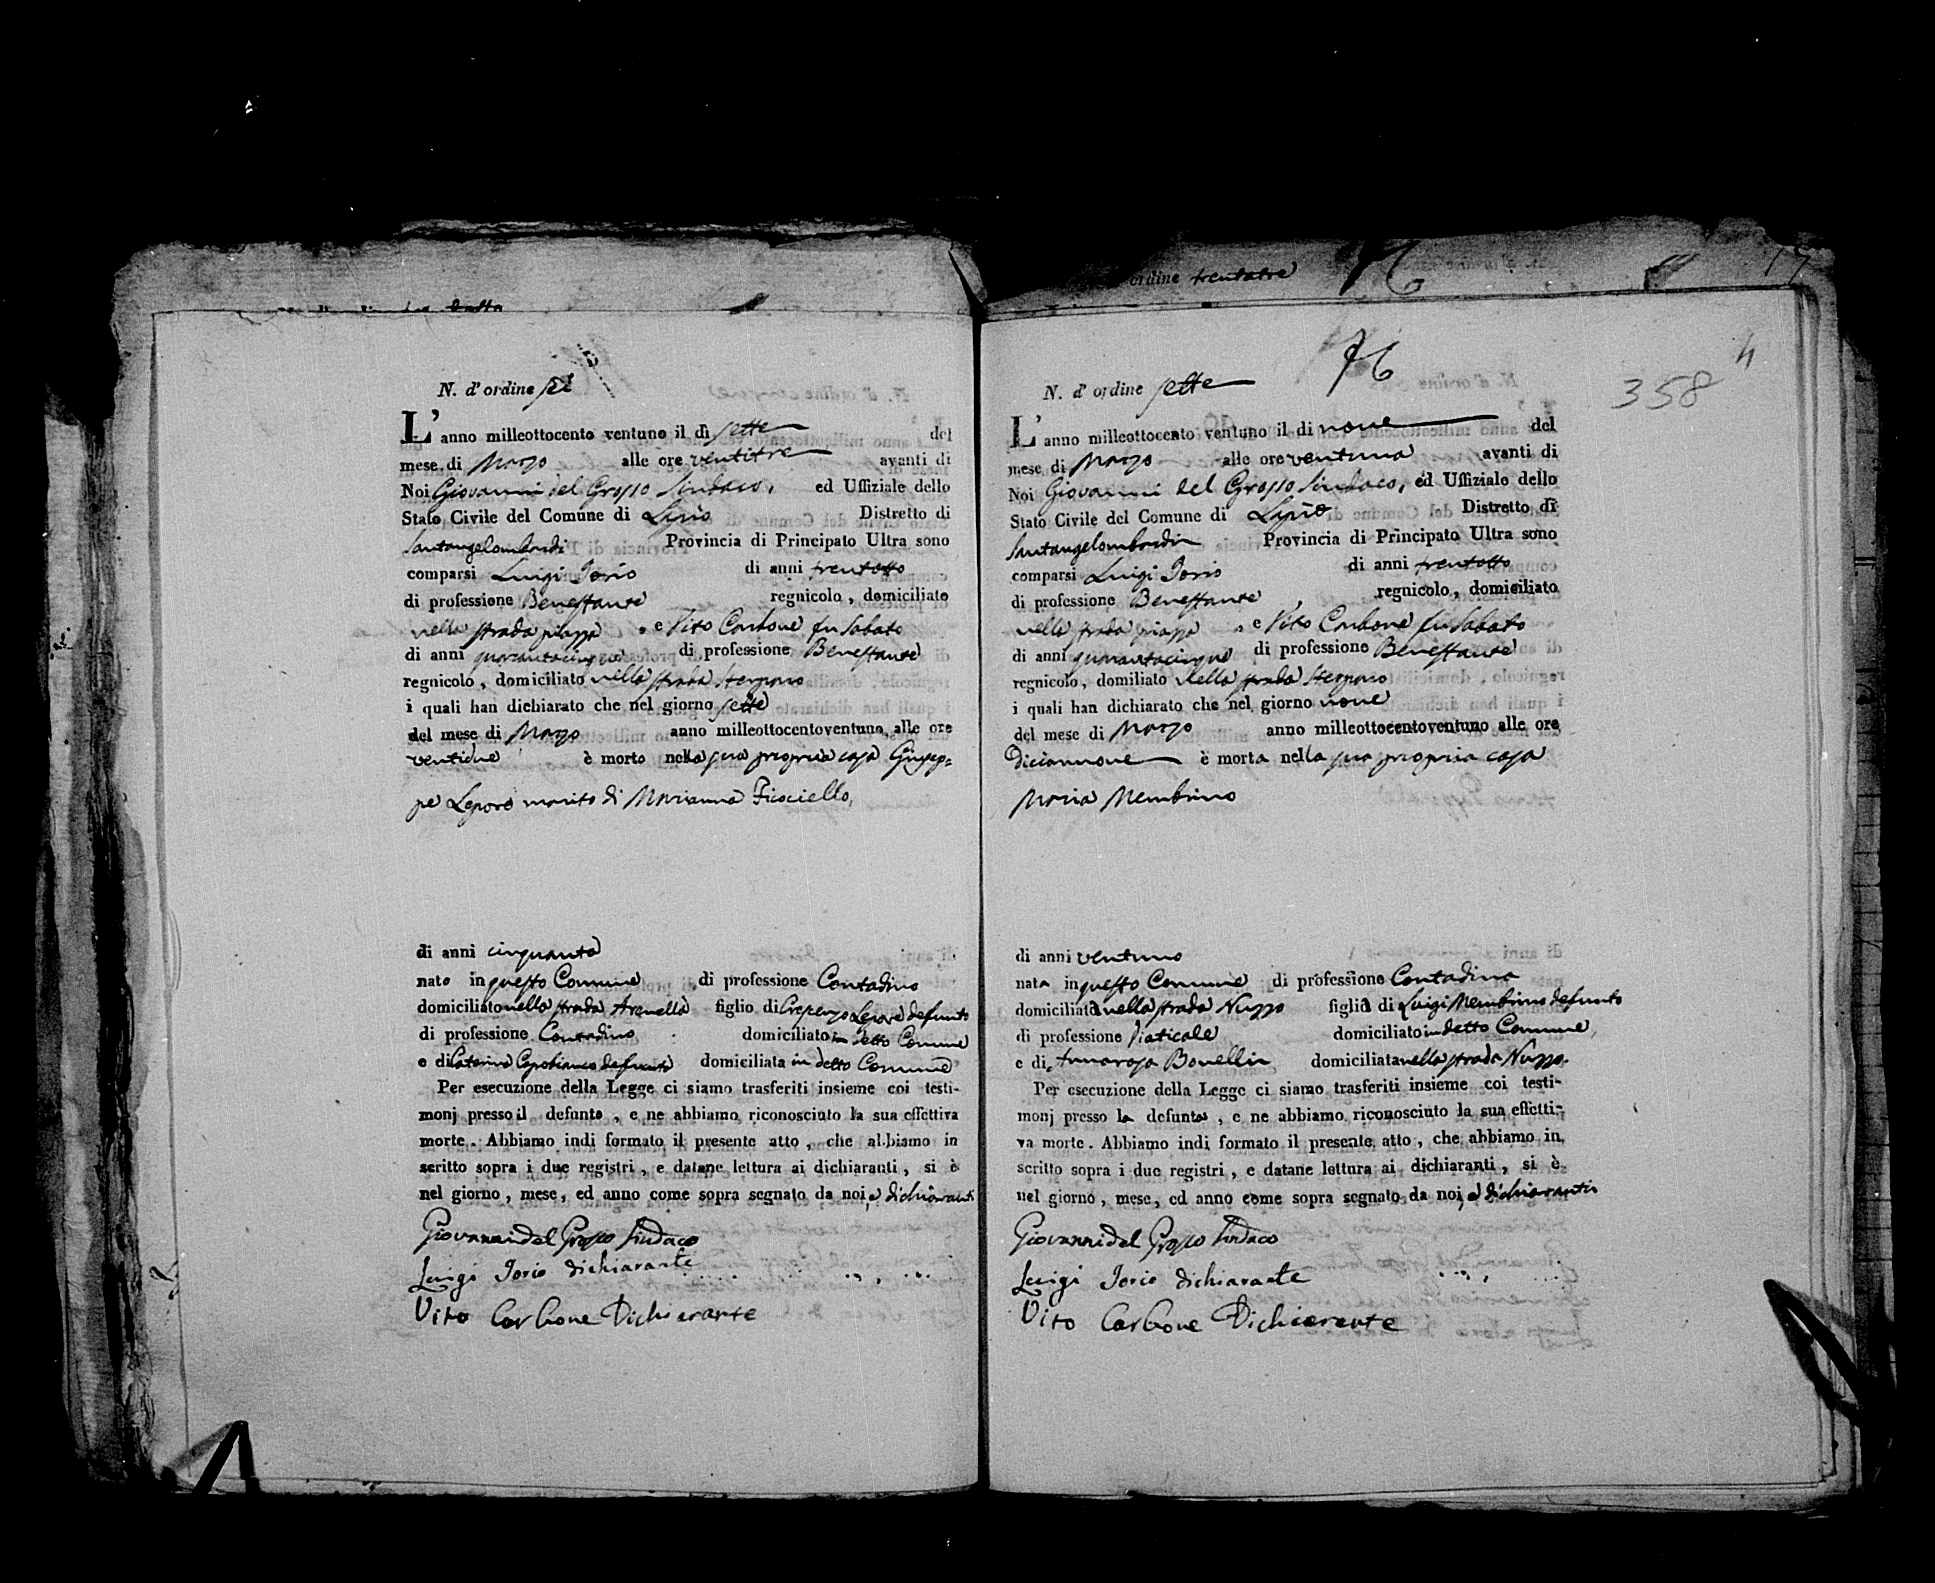 N. d' ordine sei
L' anno milleottocento ventuno il dì sette del
mese di Marzo alle ore ventitre avanti di
Noi Giovanni del Grosso Sindaco, ed Uffiziale dello
Stato Civile del Comune di Lioni Distretto di
Santangelombardi Provincia di Principato Ultra sono
comparsi Luigi Iorio di anni trentotto
di professione Benestante regnicolo, domiciliato
nella strada piazza, e Vito Carbone fu Sabato
di anni quarantacinque di professione Benestante
regnicolo, domiciliato nella strada
i quali han dichiarato che nel giorno sette
del mese di Marzo anno milleottocentoventuno, alle ore
ventidue è morto nella sua propria casa Giusep-
pe Lepore marito di Marianna Fisciello,
di anni cinquanta
nato in questo Comune di professione Contadino
domiciliato nella strada Arenella figlio di Crescenzo Lepore defunto
di professione Contadino domiciliato in detto Comune
e di Caterina Capobianco defunta domiciliata in detto Comune
Per esecuzione della Legge ci siamo trasferiti insieme coi testi-
monj presso il defunto, e ne abbiamo riconosciuto la sua effettiva
morte. Abbiamo indi formato il presente atto, che abbiamo in
scritto sopra i due registri, e datane lettura ai dichiaranti, si è
nel giorno, mese, ed anno come sopra segnato da noi, e dichiaranti
Giovanni del Grosso Sindaco
Luigi Iorio dichiarante
Vito Carbone Dichiarante
ordine trentatre
4
358
N. d' ordine sette
L' anno milleottocento ventuno il di nove del
mese di Marzo alle ore ventuna avanti di
Noi Giovanni del Grosso Sindaco, ed Uffiziale dello
Stato Civile del Comune di Lioni Distretto di
Santangelombardi Provincia di Principato Ultra sono
comparsi Luigi Iorio di anni trentotto
di professione Benestante regnicolo, domiciliato
nella strada piazza, e Vito Carbone fu Sabato
di anni quarantacinque di professione Benestante
regnicolo, domiliato nella strada
i quali han dichiarato che nel giorno nove
del mese di Marzo anno milleottocentoventuno alle ore
Diciannove è morta nella sua propria casa
Maria Membrino
di anni ventuno
nata in questo Comune di professione Contadina
domiciliata nella strada Nuzzo figlia di Luigi Membrino defunto
di professione Viaticale domiciliato in detto Comune
e di Annarosa Bonelli domiciliata nella strada Nuzzo.
Per esecuzione della Legge ci siamo trasferiti insieme coi testi-
monj presso la defunta, e ne abbiamo riconosciuto la sua effetti-
va morte. Abbiamo indi formato il presente atto, che abbiamo in
scritto sopra i due registri, e datane lettura ai dichiaranti, si è
nel giorno, mese, ed anno come sopra segnato da noi, e dichiaranti
Giovanni del Grosso Sindaco
Luigi Iorio dichiarante
Vito Carbone Dichiarante